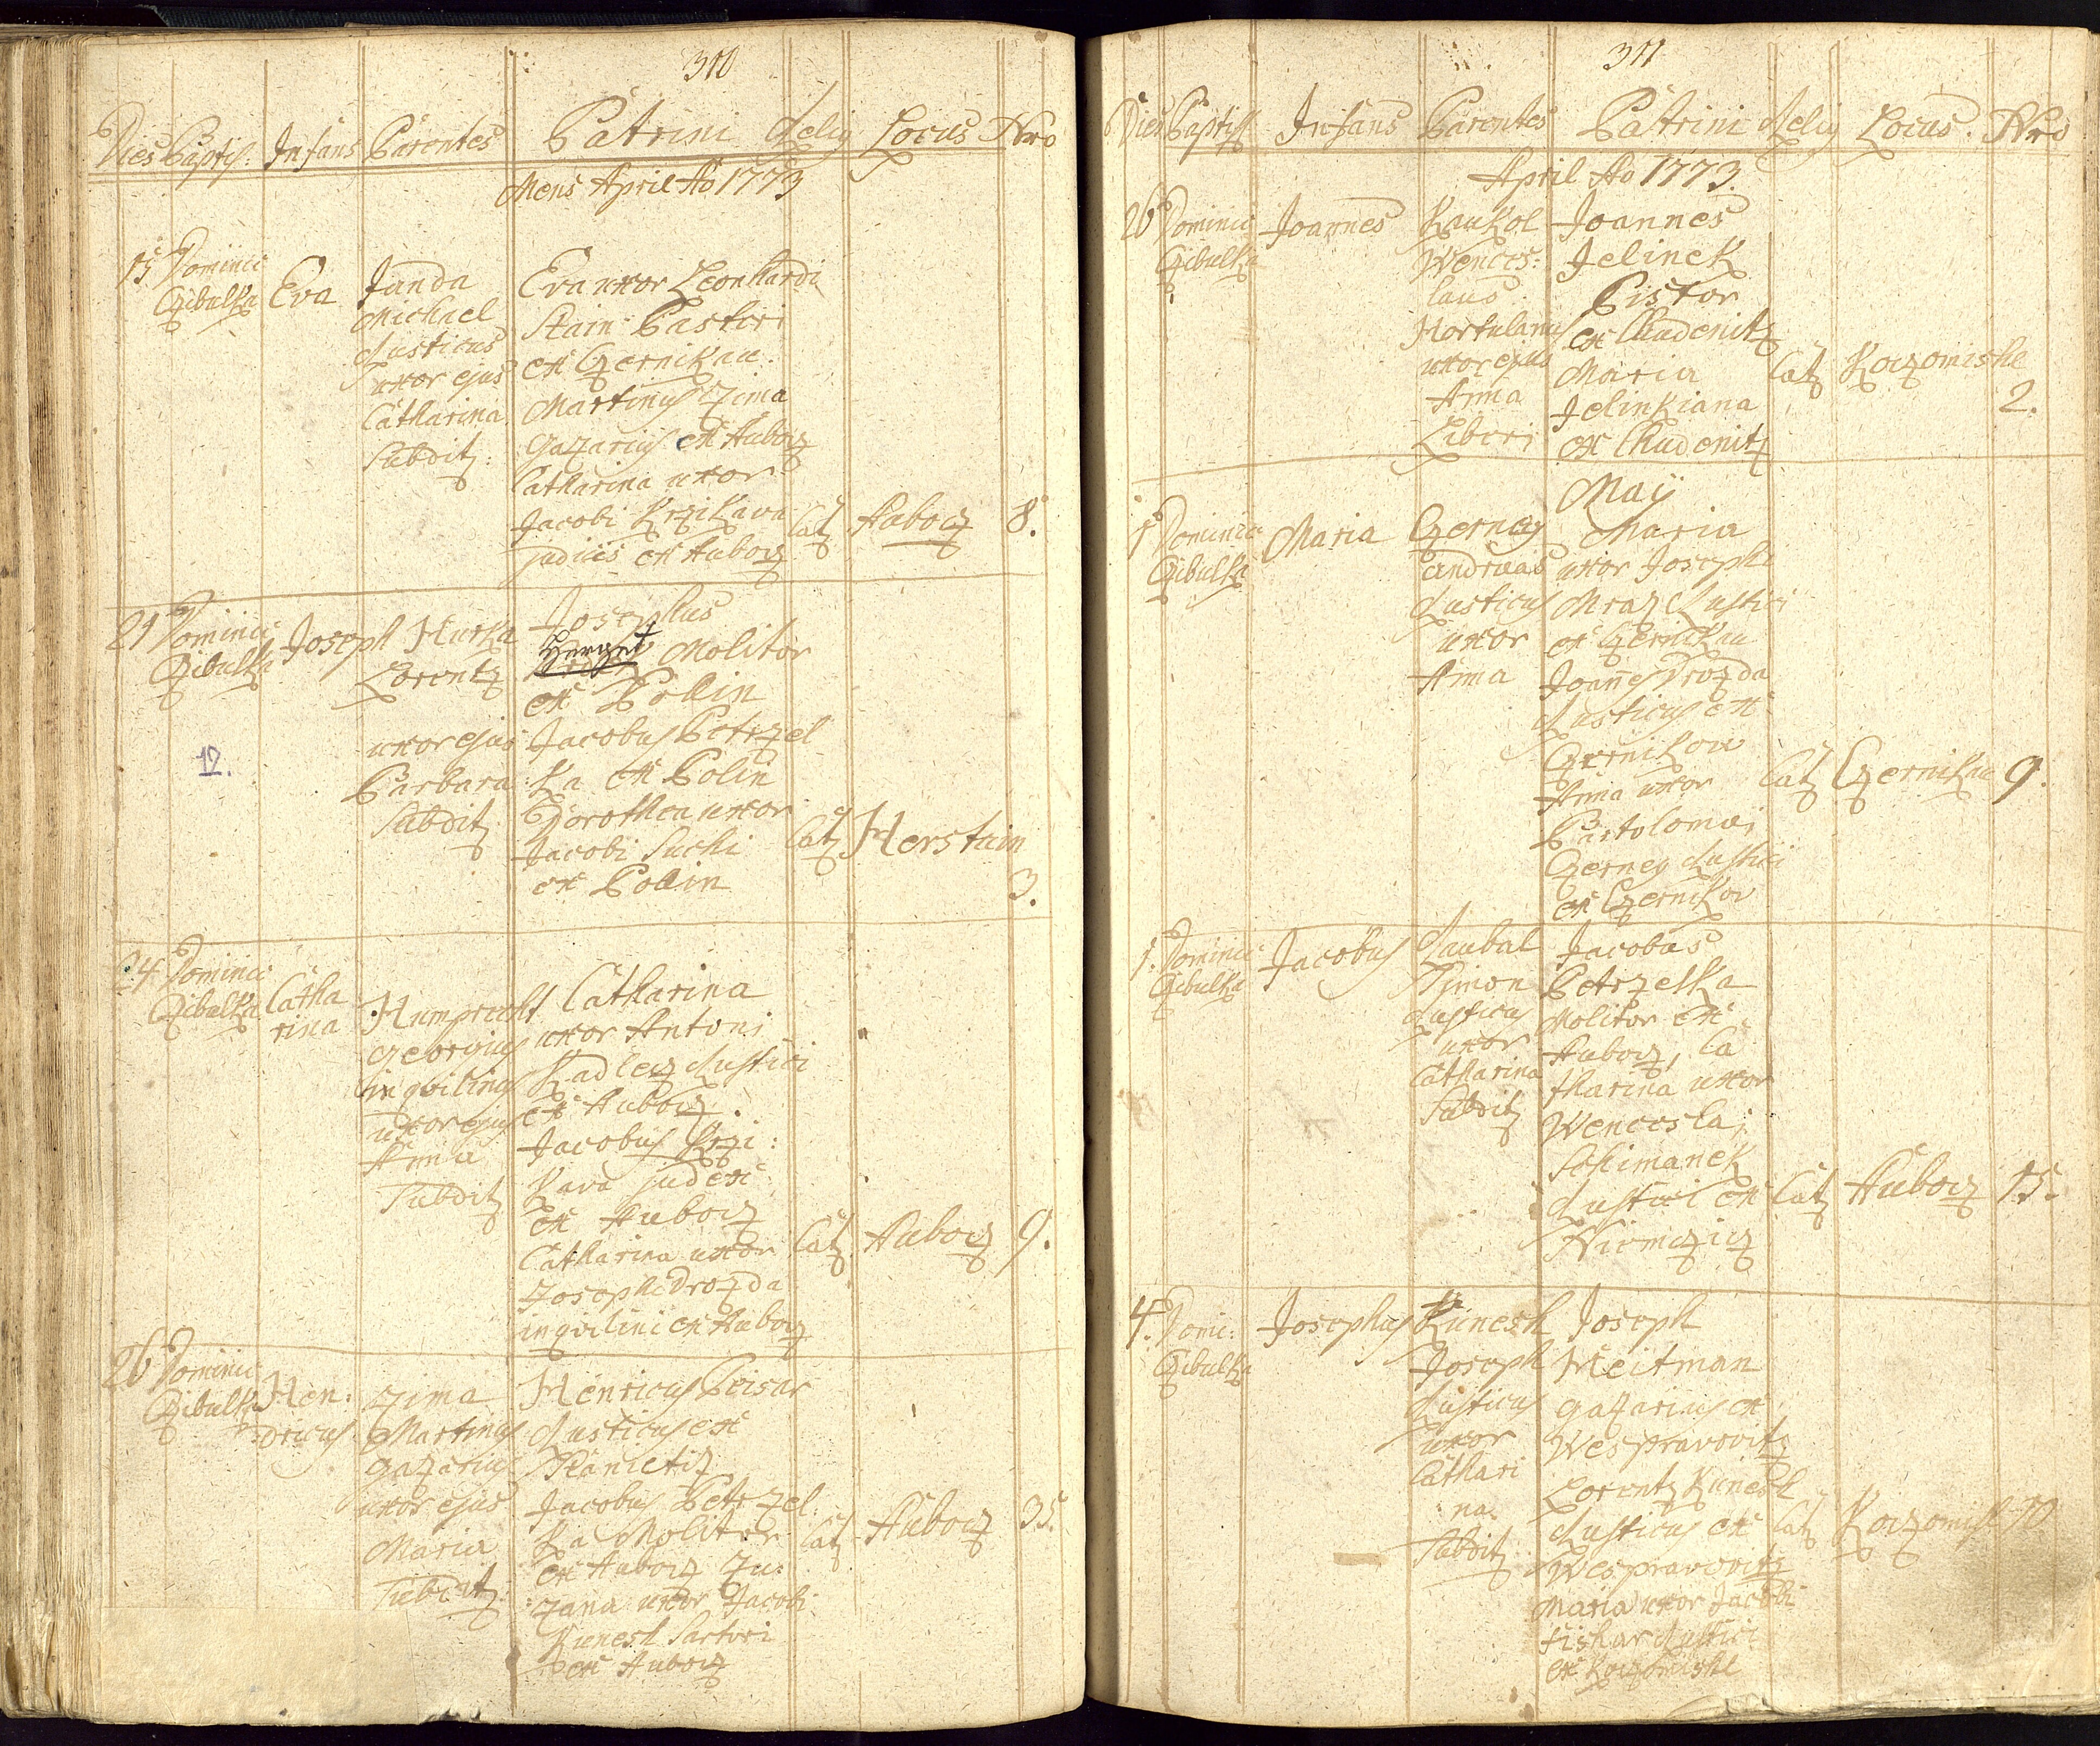 310
Dies Baptis: Infans Parentes Patrini Relig Locus Nro
Mens April Ao 1773
15 Dominic Czibulka
Eva
Janda
Michael
Rusticus
uxor ejus
Catharina
Subdit:
Eva uxor Leonhardi
Stain Pastori
ex Czernikau.
Martinus Zima
gazarius ex Aubocz
Catharina uxor
Jacobi Krzikawa
judicis ex Aubocz
Cat
Aubocz
8.
21 Dominic Czibulka
Joseph
Hurka
Lorentz
uxor ejus
Barbara
Subdit
Josephus
Herget Molitor
ex Pollin
Jacobus Petrzel
ka ex Polin
Dorothea uxor
Jacobi Suchi
ex Pollin
Cat
Herstain
3.
12.
24 Dominic Czibulka
Catha
rina
Humprecht
georgius
inqvilinus
uxor ejus
Anna
Subdit
Catharina
uxor Antoni
Kadlecz Rustici
ex Aubocz.
Jacobus Krzi:
kava judex
ex Aubocz
Catharina uxor
Josephi Drozda
inqvilini ex Aubocz
Cat
Aubocz
9.
26 Dominic Czibulka
Hen:
dricus
Zima
Martinus
gazarius
uxor ejus
Maria
Subdit
Henricus Beisar
Rusticus ex
Planietiz
Jacobus Petrzel:
ka Molitor
ex Aubocz Zu:
zana uxor Jacobi
Kunesh Sartori
ex Aubocz
Cat
Aubocz
35.
311
Dies Baptiss Infans Parentes Patrini Relig Locus. Nro
April Ao 1773.
26 Dominic Czibulka
Joannes
Kaukol
Wences:
laus
Hortulanus
uxor ejus
Anna
Liberi
Joannes
Jelinek
Pistor
ex Chudenitz
Maria
Jelinkiana
ex Chudenitz
Cat
Koczomishe
2.
Maÿ
1 Dominic Czibulka
Maria
Czerney
andreas
Rusticus
uxor
Anna
Maria
uxor Josephi
Mraz Rustici
ex Czernikau
Joannes Drozda
Rusticus ex
Czernikow
Anna uxor
Bartolomei
Czerney Rustici
ex Czernikov
Cat
Czernikau
9.
1. Dominic Czibulka
Jacobus
Raubal
Simon
Rusticus
uxor
Catharina
Subdit
Jacobus
Petrzelka
Molitor ex
Aubocz, Ca
tharina uxor
Wencesla:
Schimanek
Rustici ex
Niemcziz
Cat
Aubocz
15.
4. Domi: Czibulka
Josephus
Kunesh
Joseph
Rusticus
uxor
Cathari
na
Subdit
Joseph
Weitman
gazarius ex
Wespravovitz
Lorentz Kunesh
Rusticus ex
Wespravovitz
Maria uxor Jacobi
fishar Rustici
ex Koczomishl
Cat
Koczomishl
10